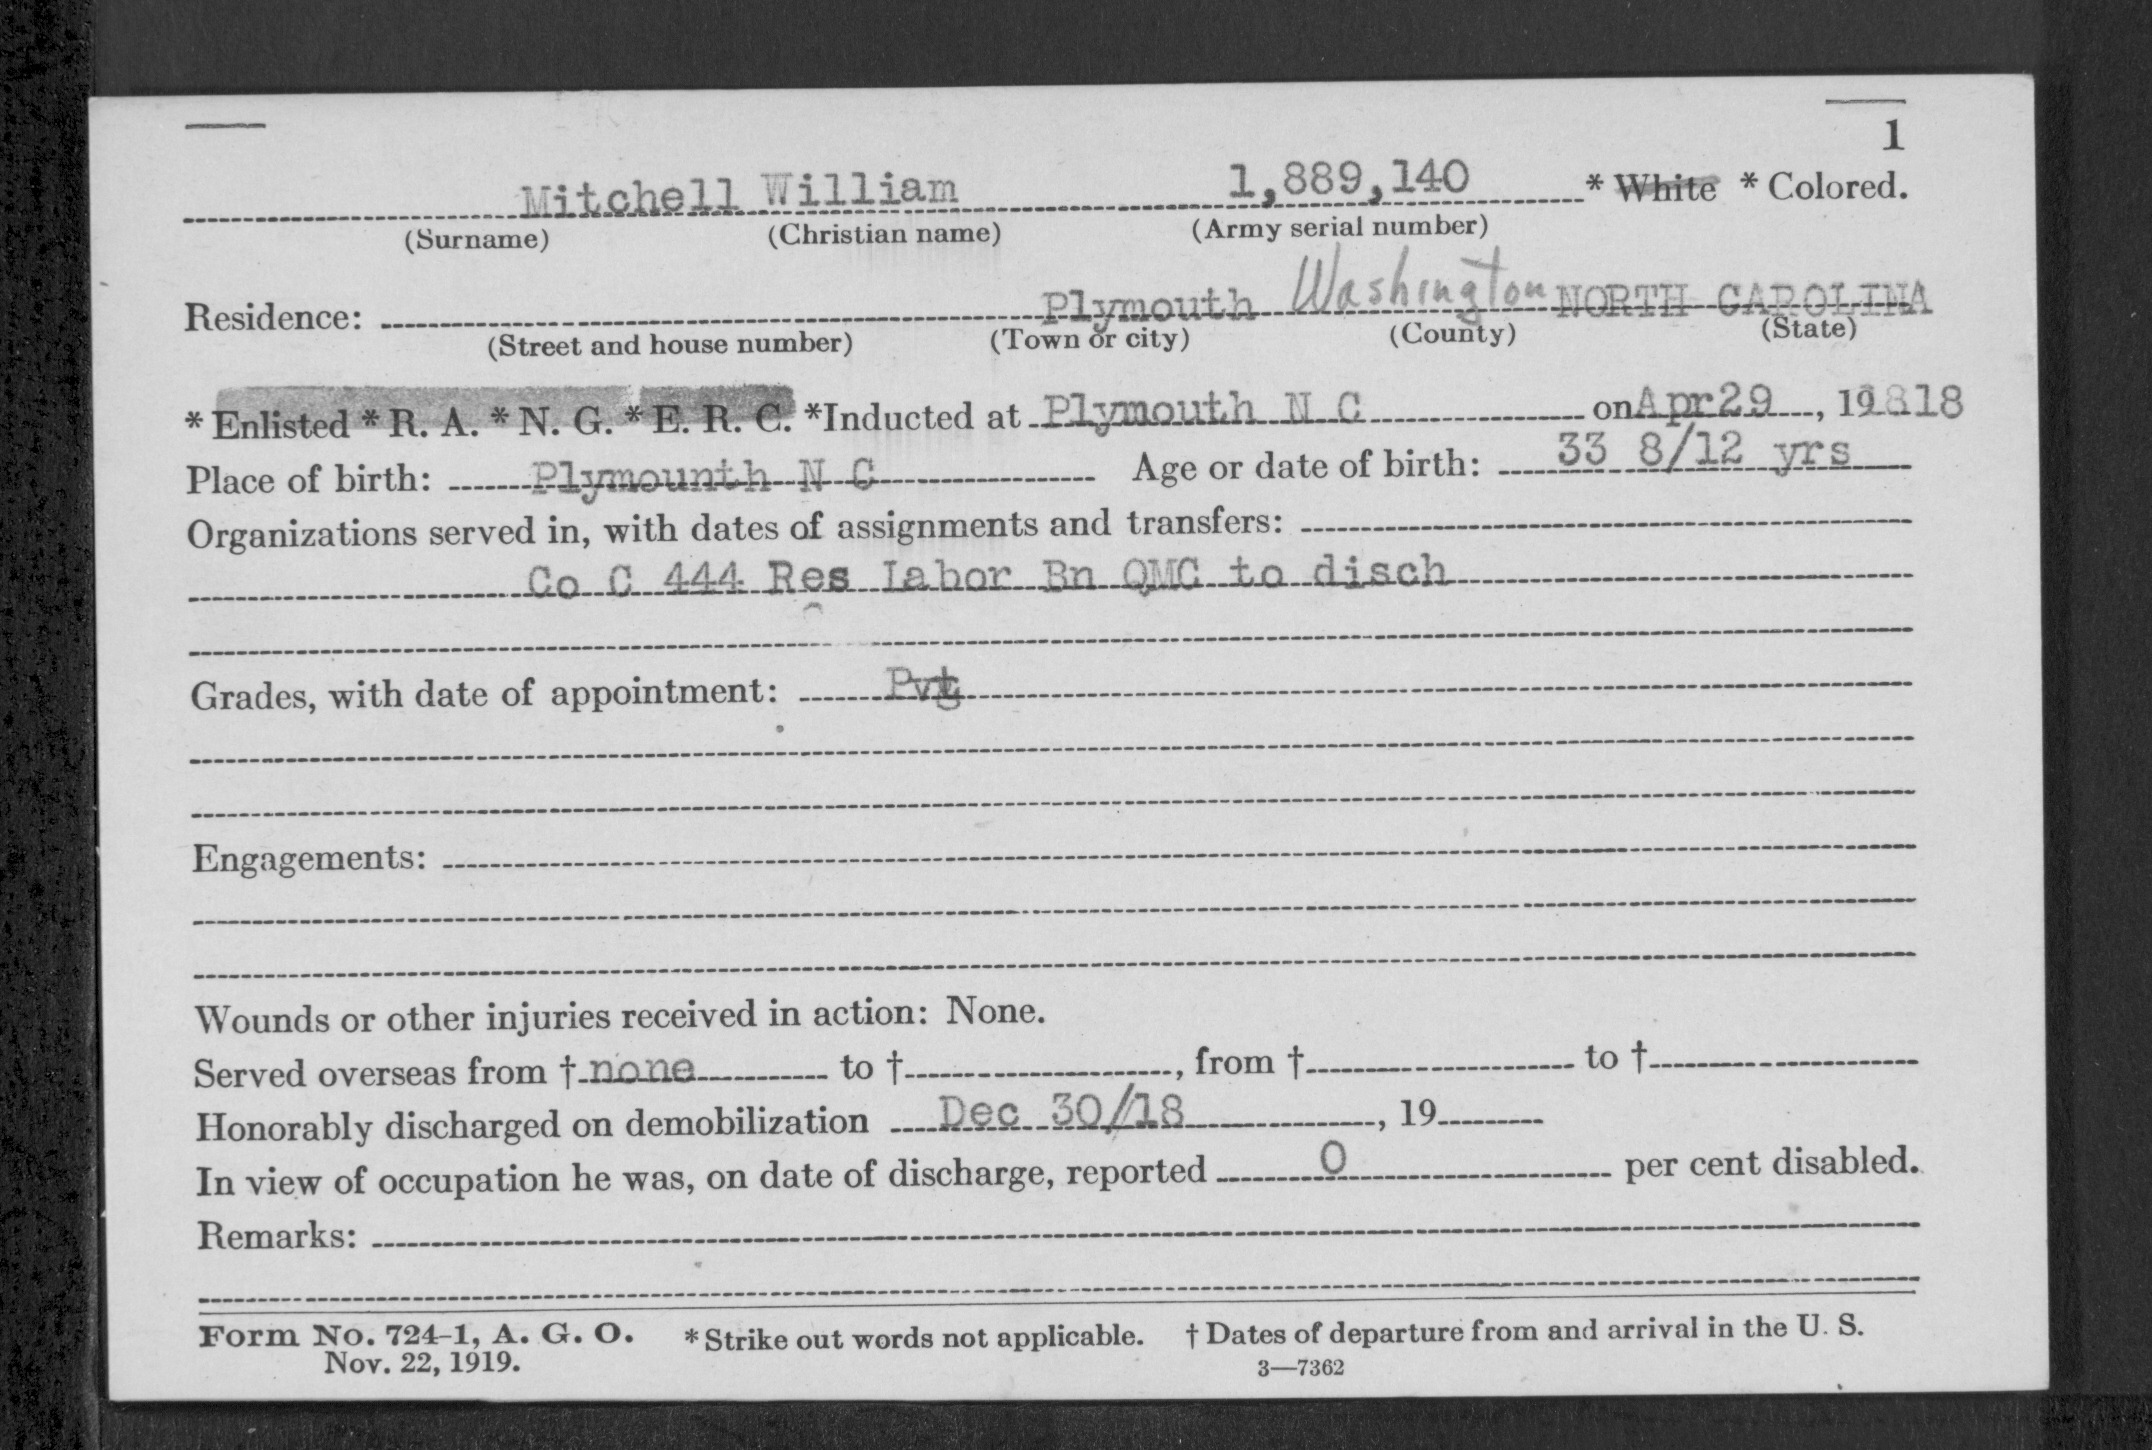 1
Mitchell William 1,889,140 * White * Colored.
(Surname) (Christian name) (Army serial number)
Residence: Plymouth Washington NORTH CAROLINA
(Street and house number) (Town or city) (County) (State)
* Enlisted * R. A. * N. G. * E. R. C. *Inducted at Plymouth N C on Apr 29, 19 18
Place of birth: Plymounth N C Age or date of birth: 33 8/12 yrs
Organizations served in, with dates of assignments and transfers:
Co C 444 Res Labor Bn QMC to disch
Grades, with date of appointment: Pvt
Engagements:
Wounds or other injuries received in action: None.
Served overseas from † none to †, from † to †
Honorably discharged on demobilization Dec 30/18, 19
In view of occupation he was, on date of discharge, reported 0 per cent disabled.
Remarks:
Form No. 724-1, A. G. O. * Strike out words not applicable. † Dates of departure from and arrival in the U. S.
Nov. 22, 1919. 3—7362